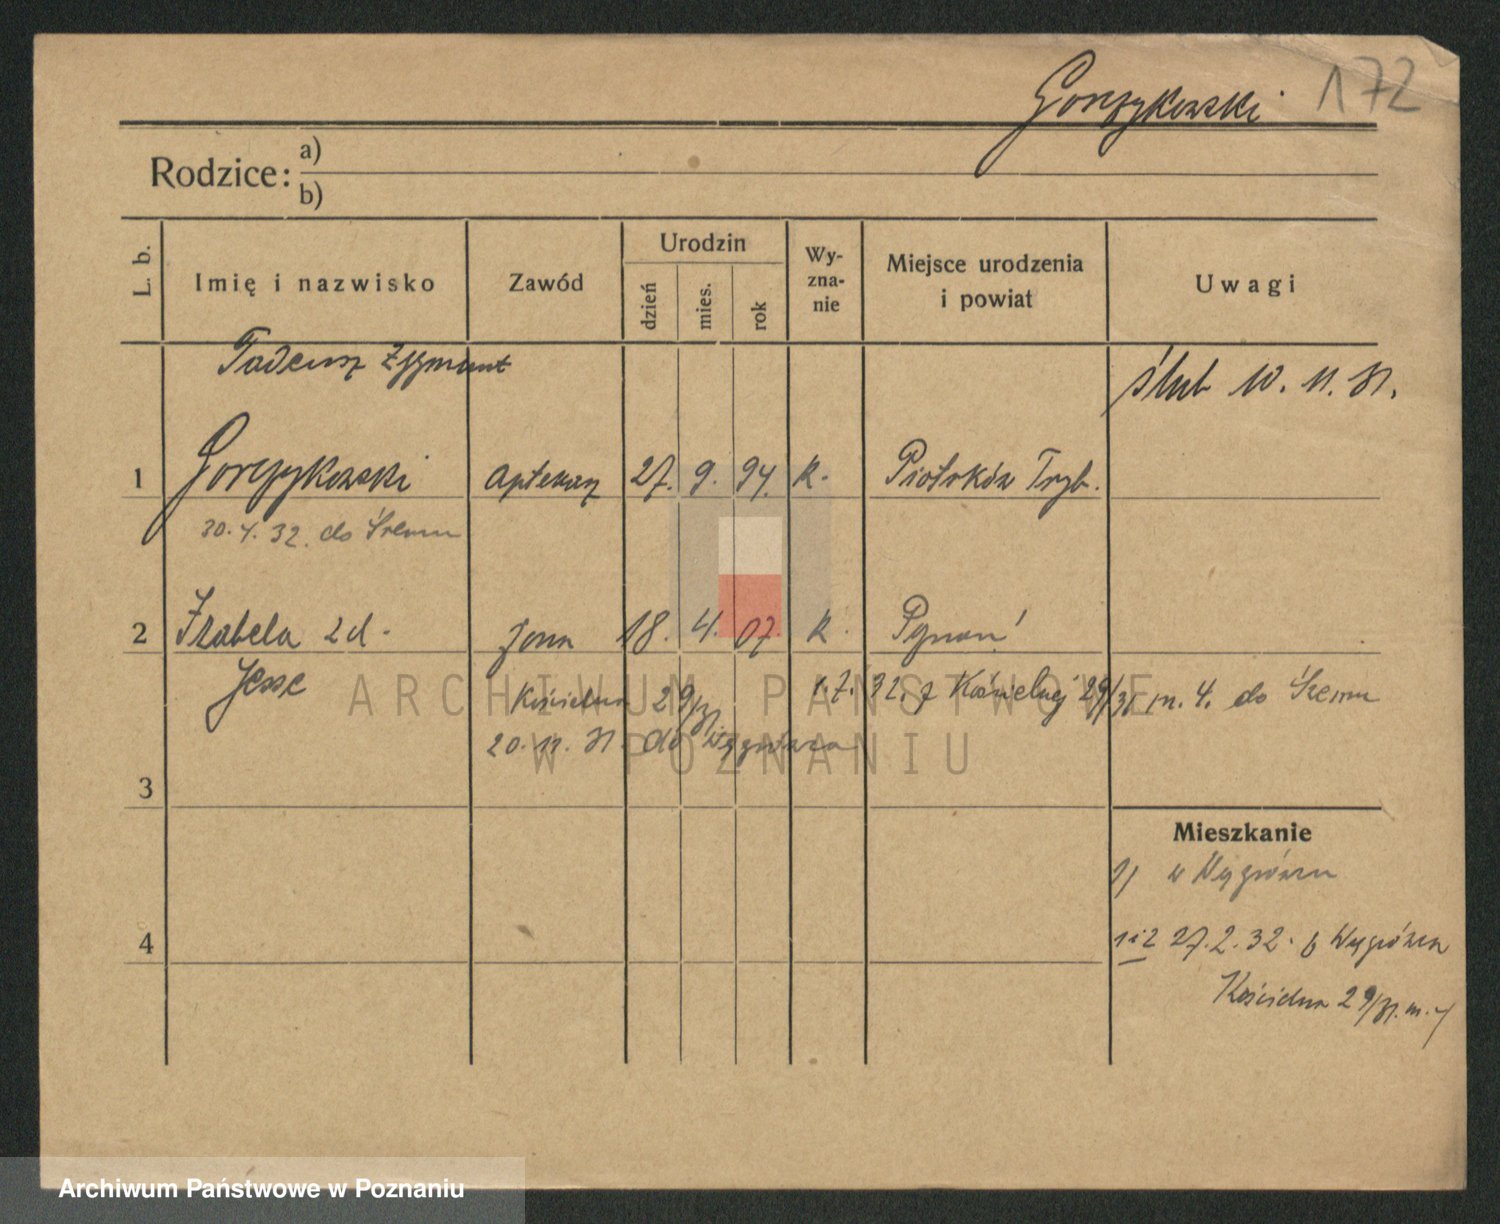 Gorczykowski 172
Rodzice: a)
b)
L. b. Imię i nazwisko Zawód Urodzin dzień mies. rok Wy-zna-nie Miejsce urodzenia i powiat Uwagi
Tadeusz Zygmunt
ślub 10. 11. 31.
1 Gorczykowski aptekarz 27. 9. 94. k. Piotrków Tryb.
30. 4. 32. do Śremu
2 Izabela zd. żona 18. 4. 07. k. Poznań
Jesse
Kościelna 29/31
1. 7. 32. z Kościelnej 29/31 m. 4. do Śremu
20. 11. 31. do Wągrówca
3
4
Mieszkanie
1) w Wągrówcu
1 i 2 27. 2. 32. z Wągrówca
Kościelna 29/31. m. 4
ARCHIWUM PAŃSTWOWE
W POZNANIU
Archiwum Państwowe w Poznaniu